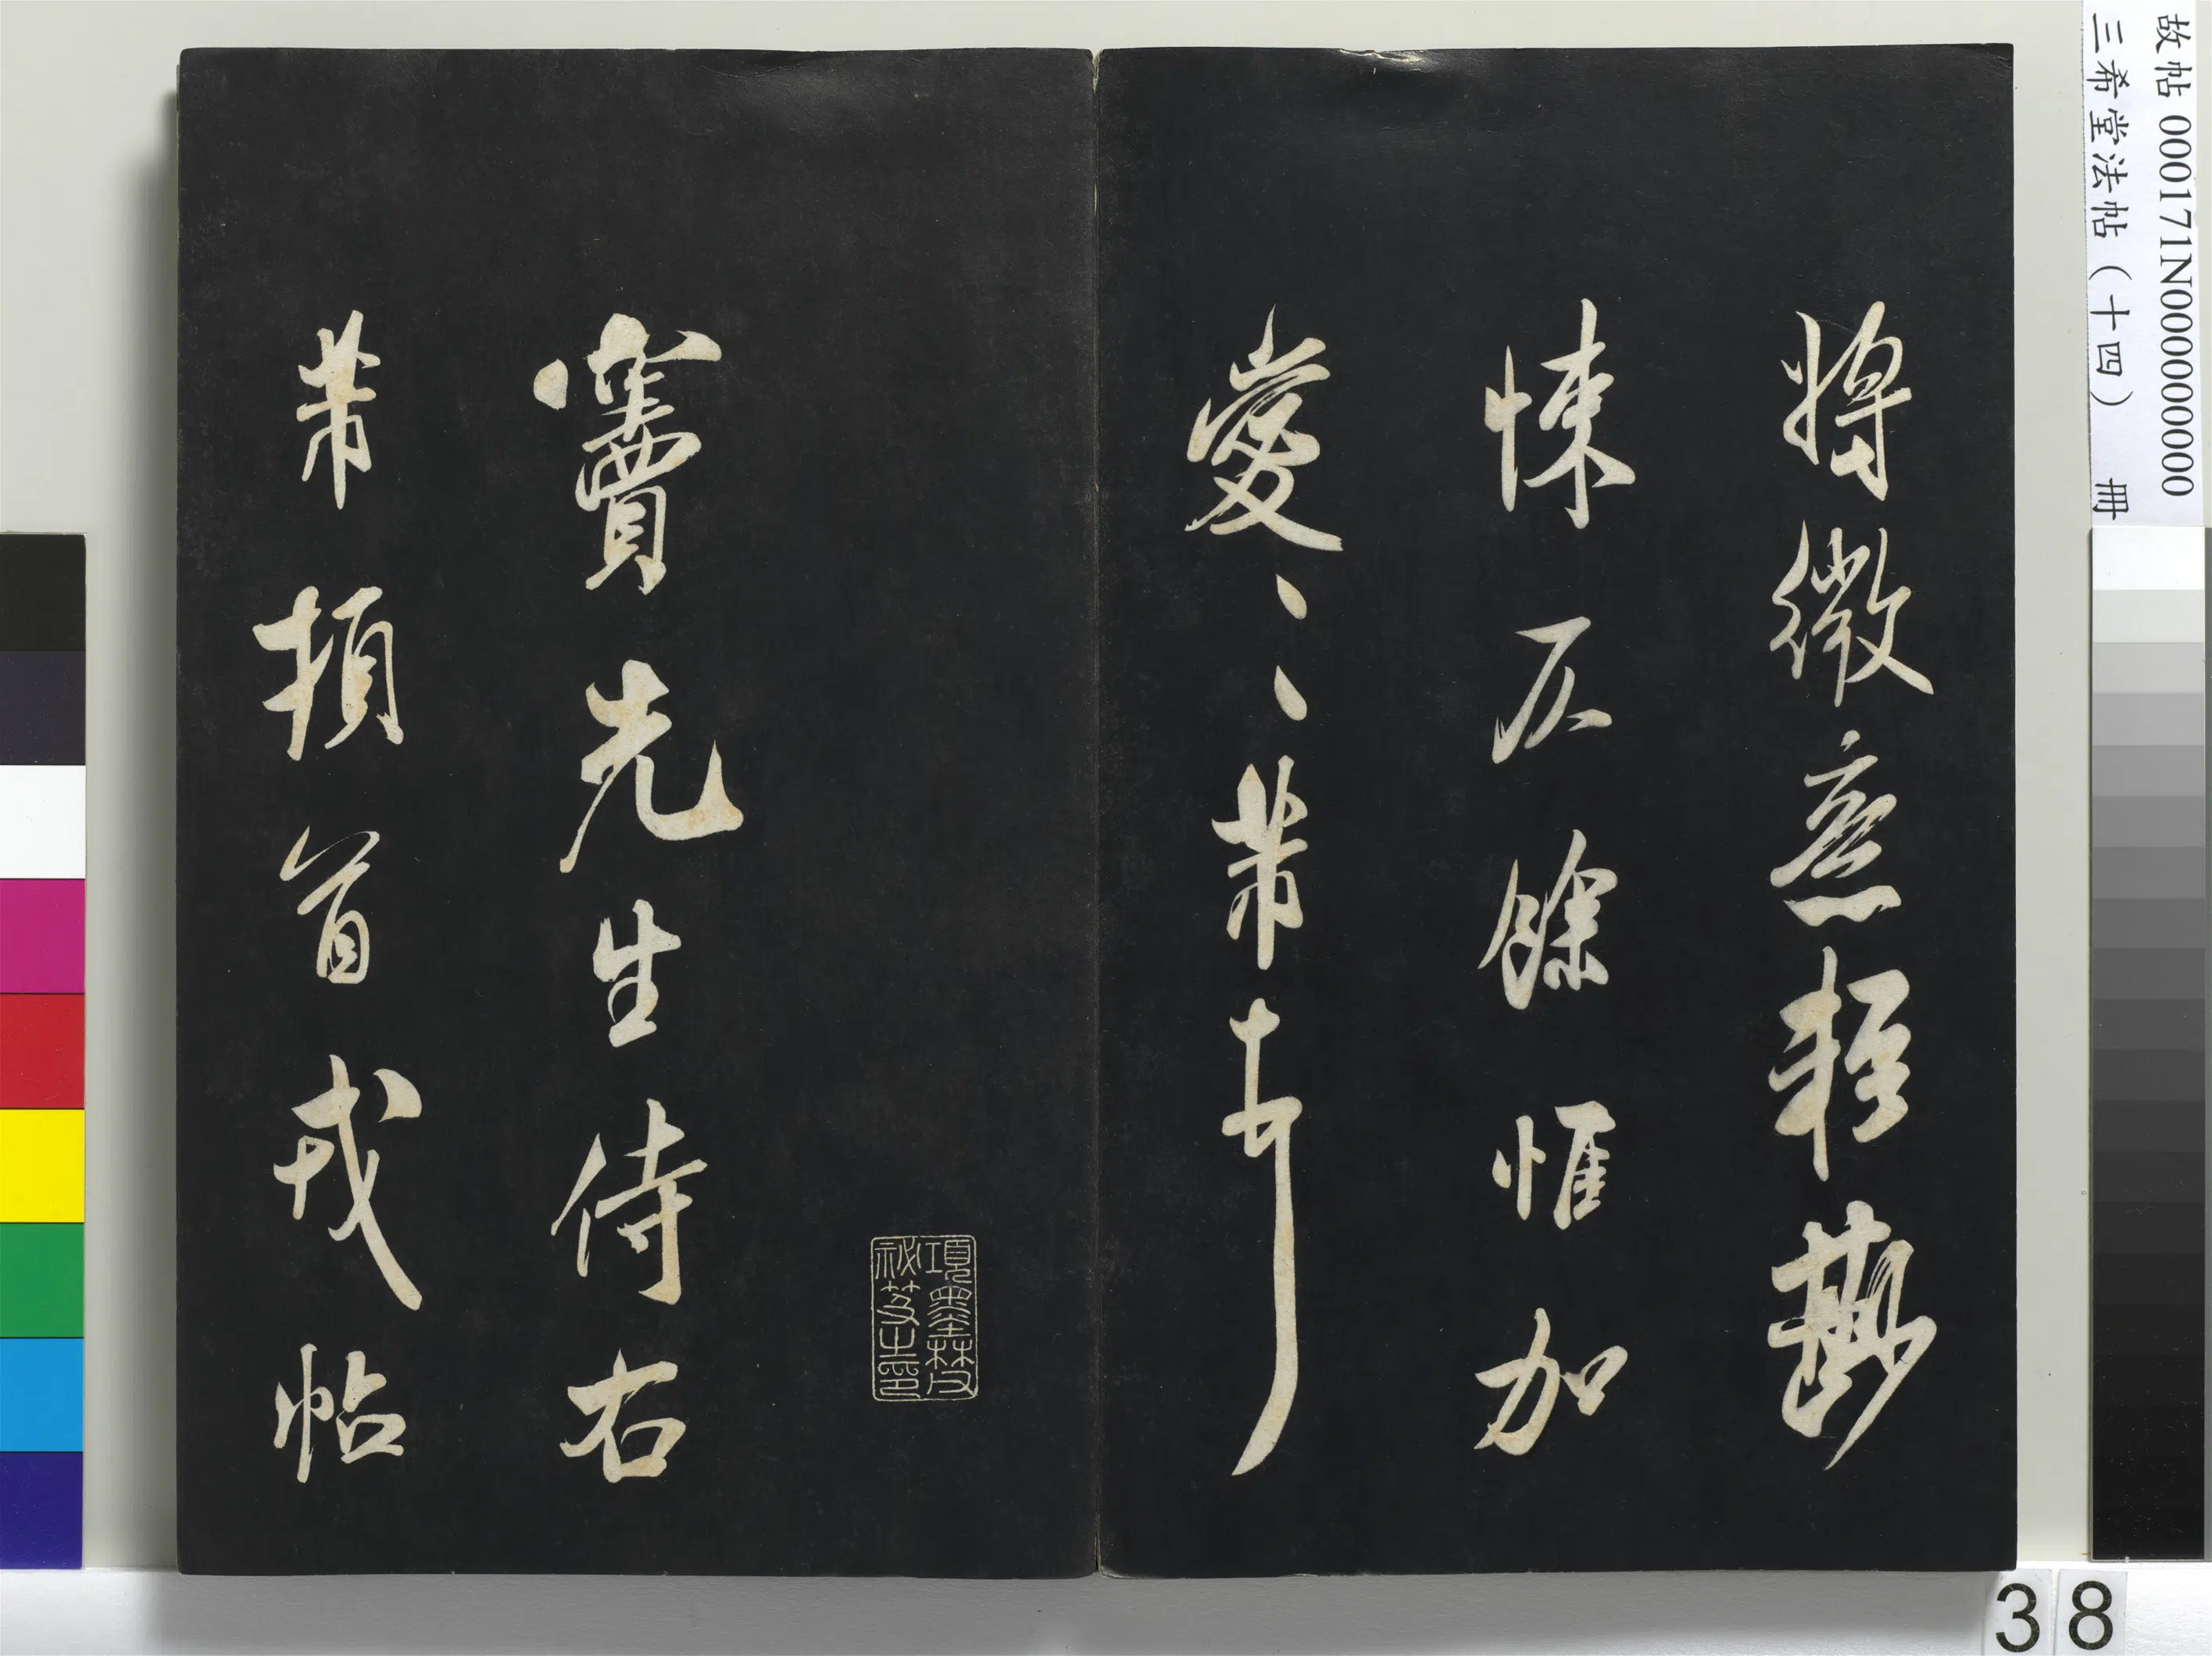 故帖 000171N000000000
三希堂法帖（十四） 冊
將微意輕尠
悚仄餘惟加
愛、、芾頓首
項墨林父
祕笈之印
竇先生侍右
芾頓首戎帖
38